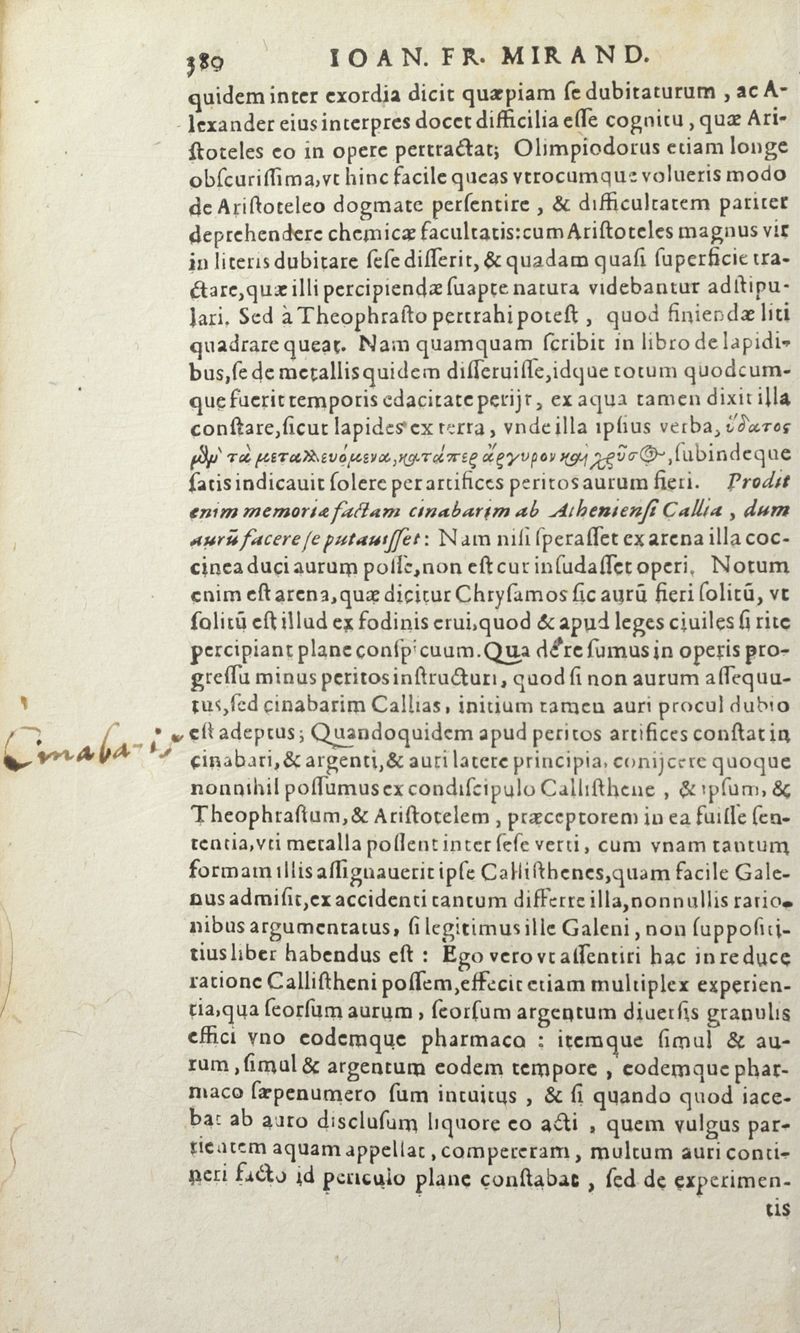 389 IOAN. FR. MIRAND.
quidem inter exordia dicit quæpiam ſe dubitaturum , ac A-
lexander eius interpres docet difficilia eſſe cognitu, quæ Ari-
ſtoteles eo in opere pertractat; Olimpiodorus etiam longe
obſcuriſſima, vt hinc facile queas vtrocumque volueris modo
de Ariſtoteleo dogmate perſentire , & difficultatem pariter
deprehendere chemicæ facultatis: cum Ariſtoteles magnus vir
in literis dubitare ſeſe diſſerit, & quadam quaſi ſuperficie tra-
ctare, quæ illi percipiendæ ſuapte natura videbantur adſtipu-
lari. Sed à Theophraſto pertrahi poteſt , quod finiendæ liti
quadrare queat. Nam quamquam ſcribit in libro de lapidi-
bus, ſe de metallis quidem diſſeruiſſe, idque totum quodcum-
que fuerit temporis edacitate perijt, ex aqua tamen dixit illa
conſtare, ſicut lapides ex terra, vnde illa ipſius verba, ὕδατος
μὲν τὰ μεταλλευόμενα, καὶ τὰ περ ἄργυρον καὶ χρῦσος, ſubindeque
ſatis indicauit ſolere per artifices peritos aurum fieri. Prodit
enim memoriæ factam cinabarim ab Atheniensi Callia , dum
aurū facere ſe putauiſſet: Nam niſi ſperaſſet ex arena illa coc-
cinea duci aurum poſſe, non eſt cur inſudaſſet operi. Notum
enim eſt arena, quæ dicitur Chryſamos ſic aurū fieri ſolitū, vt
ſolitū eſt illud ex fodinis erui, quod & apud leges ciuiles ſi rite
percipiant plane conſpicuum. Qua de re ſumus in operis pro-
greſſu minus peritos inſtructuri, quod ſi non aurum aſſequu-
tus, ſed cinabarim Callias, initium tamen auri procul dubio
eſt adeptus; Quandoquidem apud peritos artifices conſtat in
Cinabaris
cinabari, & argenti, & auri latere principia, conijcere quoque
nonnihil poſſumus ex condiſcipulo Calliſthene , & ipſum, &
Theophraſtum, & Ariſtotelem , præceptorem in ea fuiſſe ſen-
tentia, vti metalla poſſent inter ſeſe verti, cum vnam tantum
formam illis aſſignauerit ipſe Calliſthenes, quam facile Gale-
nus admiſit, ex accidenti tantum differre illa, nonnullis ratio-
nibus argumentatus, ſi legitimus ille Galeni, non ſuppoſiti-
tius liber habendus eſt : Ego vero vt aſſentiri hac in re duce
ratione Calliſtheni poſſem, effecit etiam multiplex experien-
tia, qua ſeorſum aurum , ſeorſum argentum diuerſis granulis
effici vno eodemque pharmaco : itemque ſimul & au-
rum, ſimul & argentum eodem tempore , eodemque phar-
maco ſæpenumero ſum intuitus , & ſi quando quod iace-
bat ab auro discluſum liquore eo acti , quem vulgus par-
tientem aquam appellat, compereram, multum auri conti-
neri facto id periculo plane conſtabat , ſed de experimen-
tis